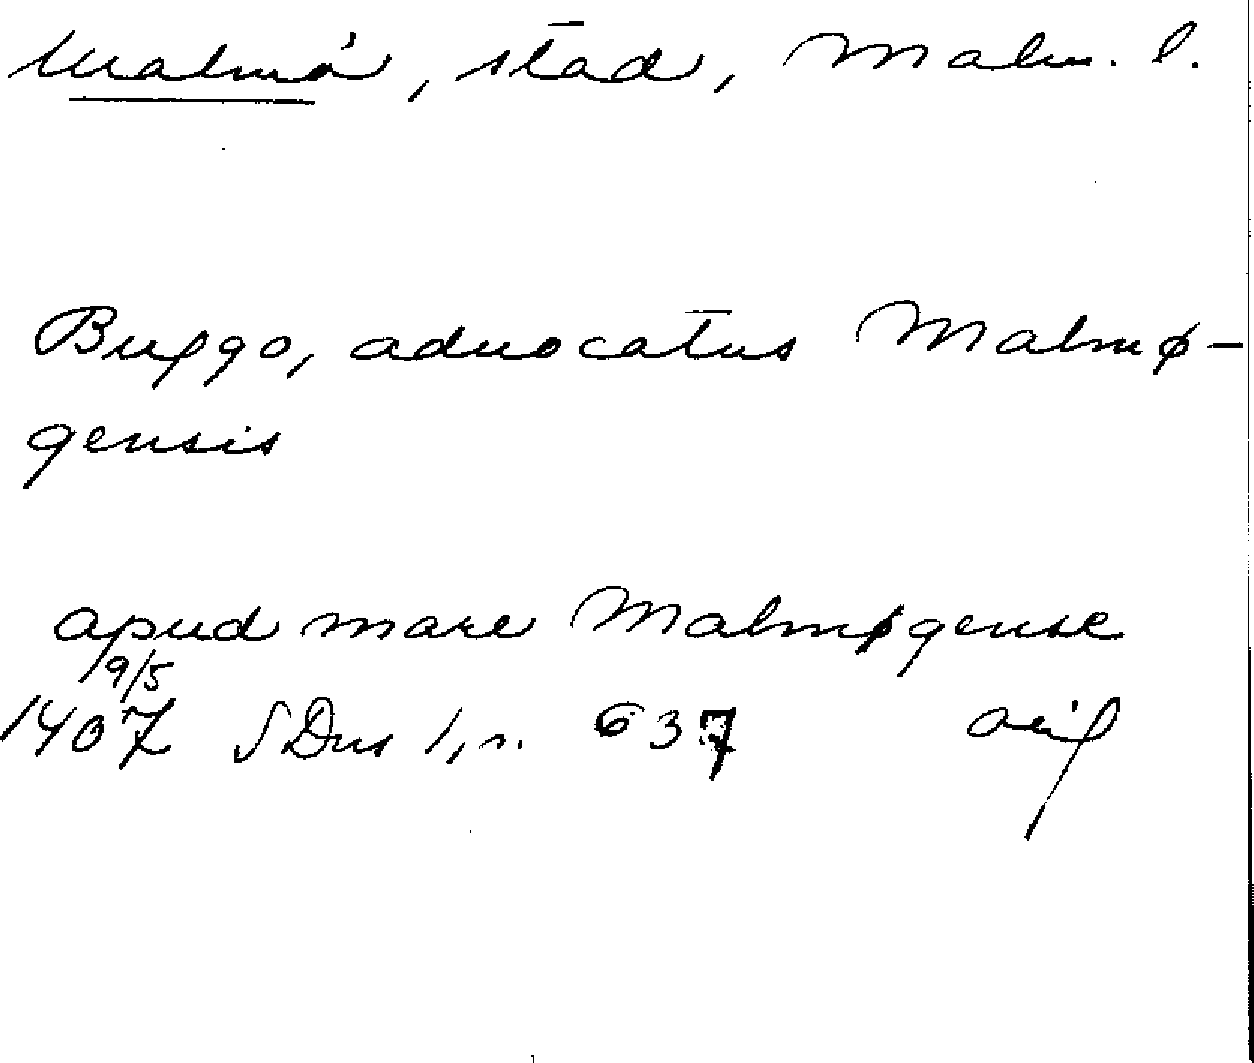 Malmö, stad, Malm. l.
Buggo, aduocatus Malmø-
gensis
apud mare Malmøgense
9/5
1407 SDns 1, s. 637 orig